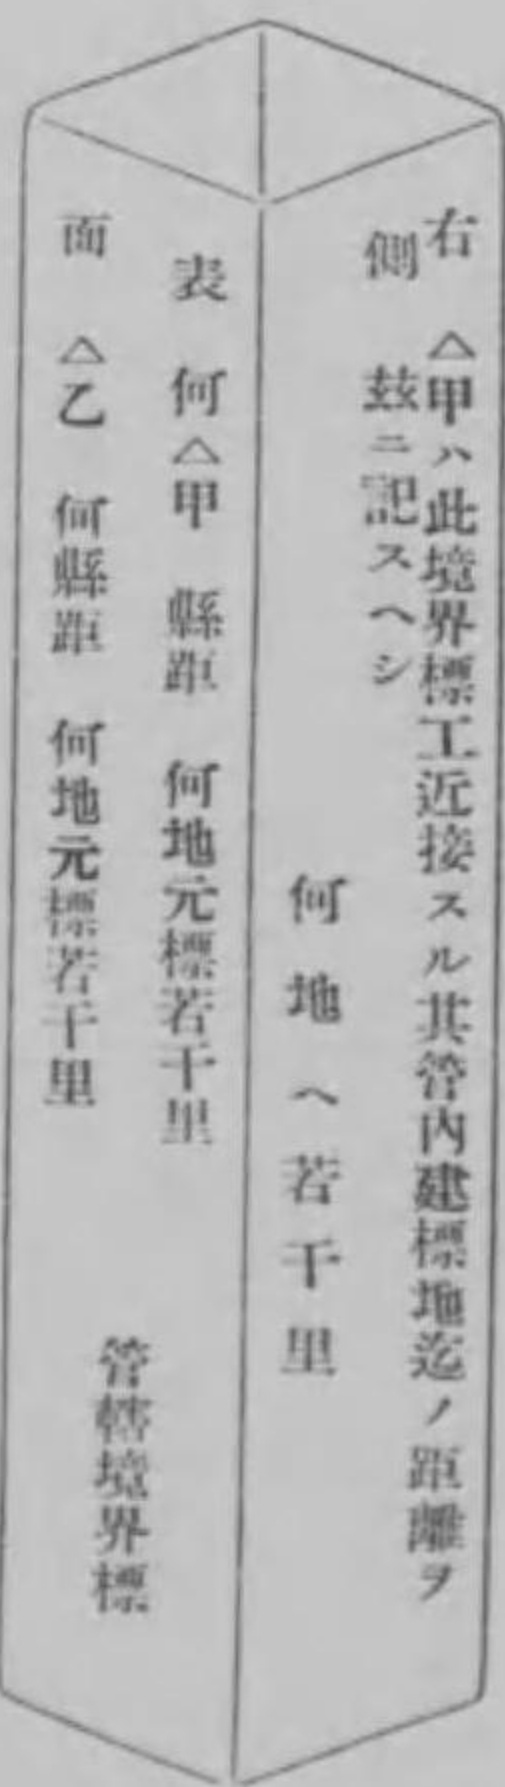 右 △甲ハ此境界標工近接スル其管内建標地迄ノ距離ヲ
側 茲ニ記スヘシ
何地ヘ若干里
表 何△甲 縣距 何地元標若干里
面 △乙 何縣距 何地元標若干里
管轄境界標